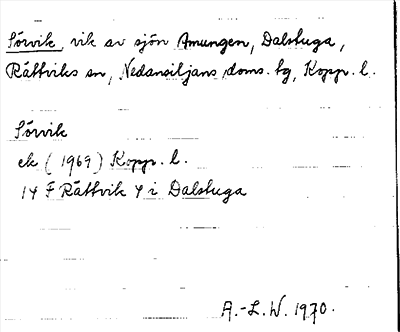 Sörvik, vik av sjön Amungen, Dalstuga,
Rättviks sn, Nedansiljans doms. tg, Kopp. l.
Sörvik
ek (1969) Kopp. l.
14 F Rättvik 4 i Dalstuga
A.-L.W. 1970.